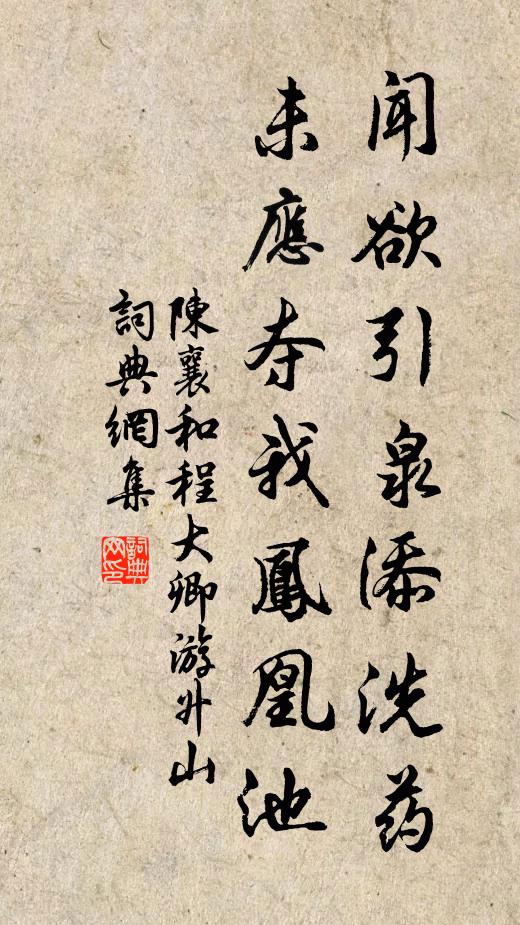 闻欲引泉添洗药
未應夺我鳳凰池
陳襄和程大卿游升山
詞典網集
詞典网印